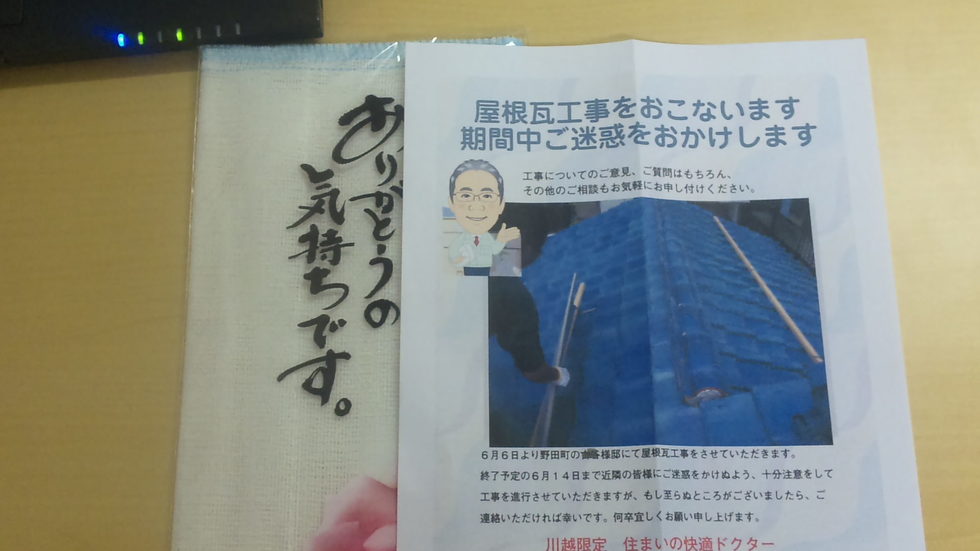 ありがとうの
気持ちです。
屋根瓦工事をおこないます
期間中ご迷惑をおかけします
工事についてのご意見、ご質問はもちろん、
その他のご相談もお気軽にお申し付けください。
6月6日より野田町の 様邸にて屋根瓦工事をさせていただきます。
終了予定の6月14日まで近隣の皆様にご迷惑をかけぬよう、十分注意をして
工事を進行させていただきますが、もし至らぬところがございましたら、ご
連絡いただければ幸いです。何卒宜しくお願い申し上げます。
川越限定 住まいの快適ドクター